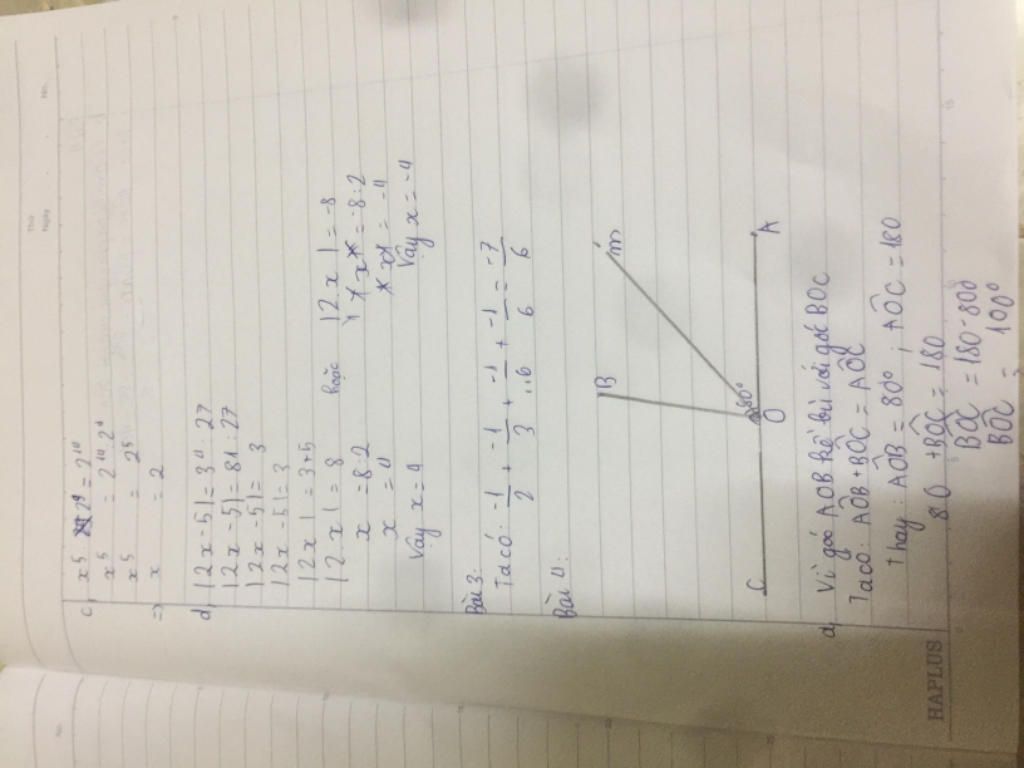 c, x⁵ 2⁹ = 2¹⁴
x⁵ = 2¹⁴ : 2⁹
x⁵ = 2⁵
=> x = 2
d, |2x - 5| = 3⁴ : 27
|2x - 5| = 81 : 27
|2x - 5| = 3
|2x - 5| = 3
|2x | = 3 + 5
|2x | = 8 hoặc |2x | = -8
x = 8 : 2 x = -8 : 2
x = 4 x = -4
Vậy x = 4 Vậy x = -4
Bài 3:
Ta có: -1/2 + -1/3 + -1/6 + -1/6 = -7/6
Bài 4:
B m
80°
C O A
a, Vì góc AOB kề bù với góc BOC
Ta có: AÔB + BÔC = AÔC
Thay: AÔB = 80° ; AÔC = 180
80 + BÔC = 180
BÔC = 180 - 800
BÔC = 100°
HAPLUS